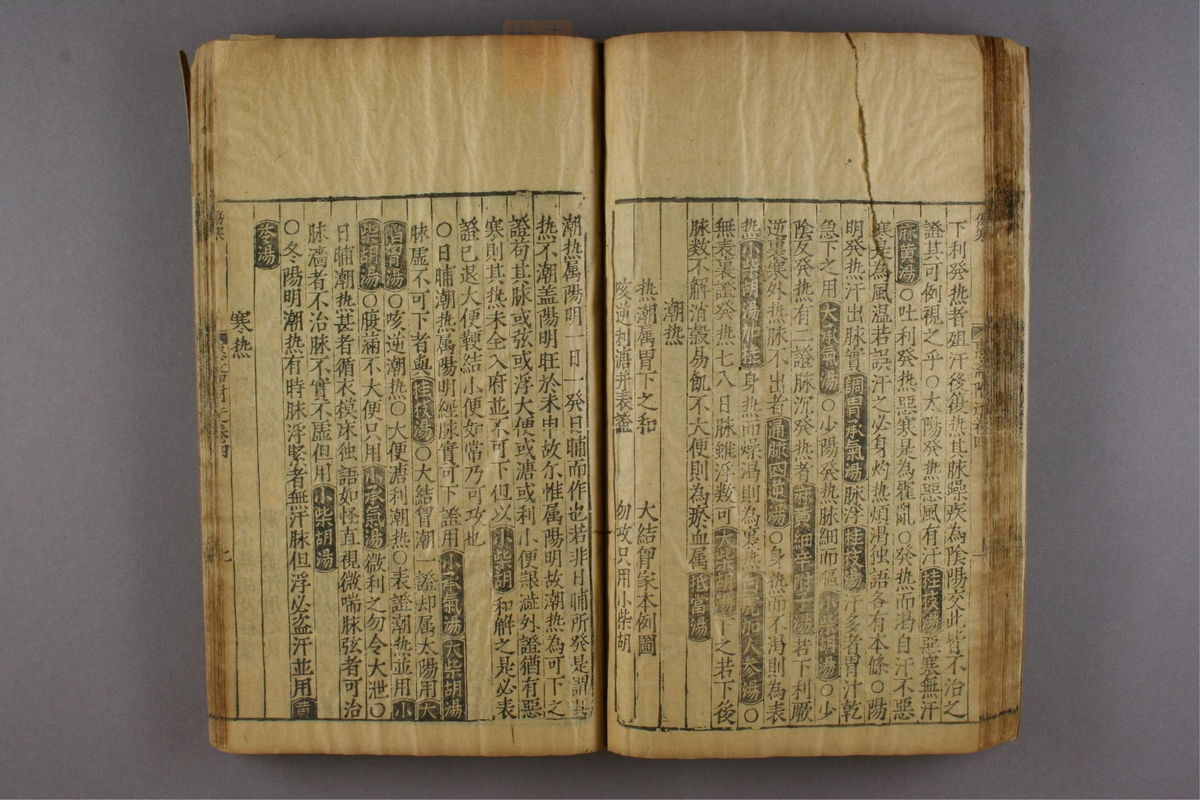 下利發热者姐汗後復热其脉躁疾為陰陽交此皆不治之
證其可例視之乎○太陽發热惡風有汗桂枝湯惡寒無汗
麻黄湯○吐利發热惡寒是為霍亂○發热而渴自汗不惡
寒是為風温若誤汗之必身灼热煩渴独語各有本條○陽
明發热汗出脉實調胃承氣湯脉浮桂枝湯汗多者胃汗乾
急下之用大承氣湯○少陽發热脉細而嘔小柴胡湯○少
陰久發热有二證脉沉發热者麻黄細辛附子湯若下利厥
逆裏寒外热脉不出者通脉四逆湯○身热而不渴則為表
热小柴胡湯加桂身热而燥渴則為裏热白虎加人參湯○
無表裏證發热七八日脉雖浮数可大柴胡湯下之若下後
脉数不解消穀易飢不大便則為瘀血属抵當湯
潮热
热潮属胃下之和 大結胷家本例圖
咳逆利溏并表證 勿攻只用小柴胡
潮热属陽明一日一發日晡而作也若非日晡所發是謂
热不潮盖陽明旺於未申故尓惟属陽明故潮热為可下之
證苟其脉或弦或浮大便或溏或利小便艱澁外證猶有惡
寒則其热未全入府並不可下但以小柴胡和解之是必表
證已退大便鞕結小便如常乃可攻也
○日晡潮热属陽明經脉實可下證用小承氣湯大柴胡湯
脉虛不可下者與桂枝湯○大結胷潮一證却属太陽用大
陷胷湯○咳逆潮热○大便溏利潮热○表證潮热並用小
柴胡湯○腹滿不大便只用小承氣湯微利之勿令大泄○
日晡潮热甚者循衣摸床独語如怪直視微喘脉弦者可治
脉濇者不治脉不實不虛但用小柴胡湯
○冬陽明潮热有時脉浮緊者無汗脉但浮必盗汗並用黄
芩湯
寒热